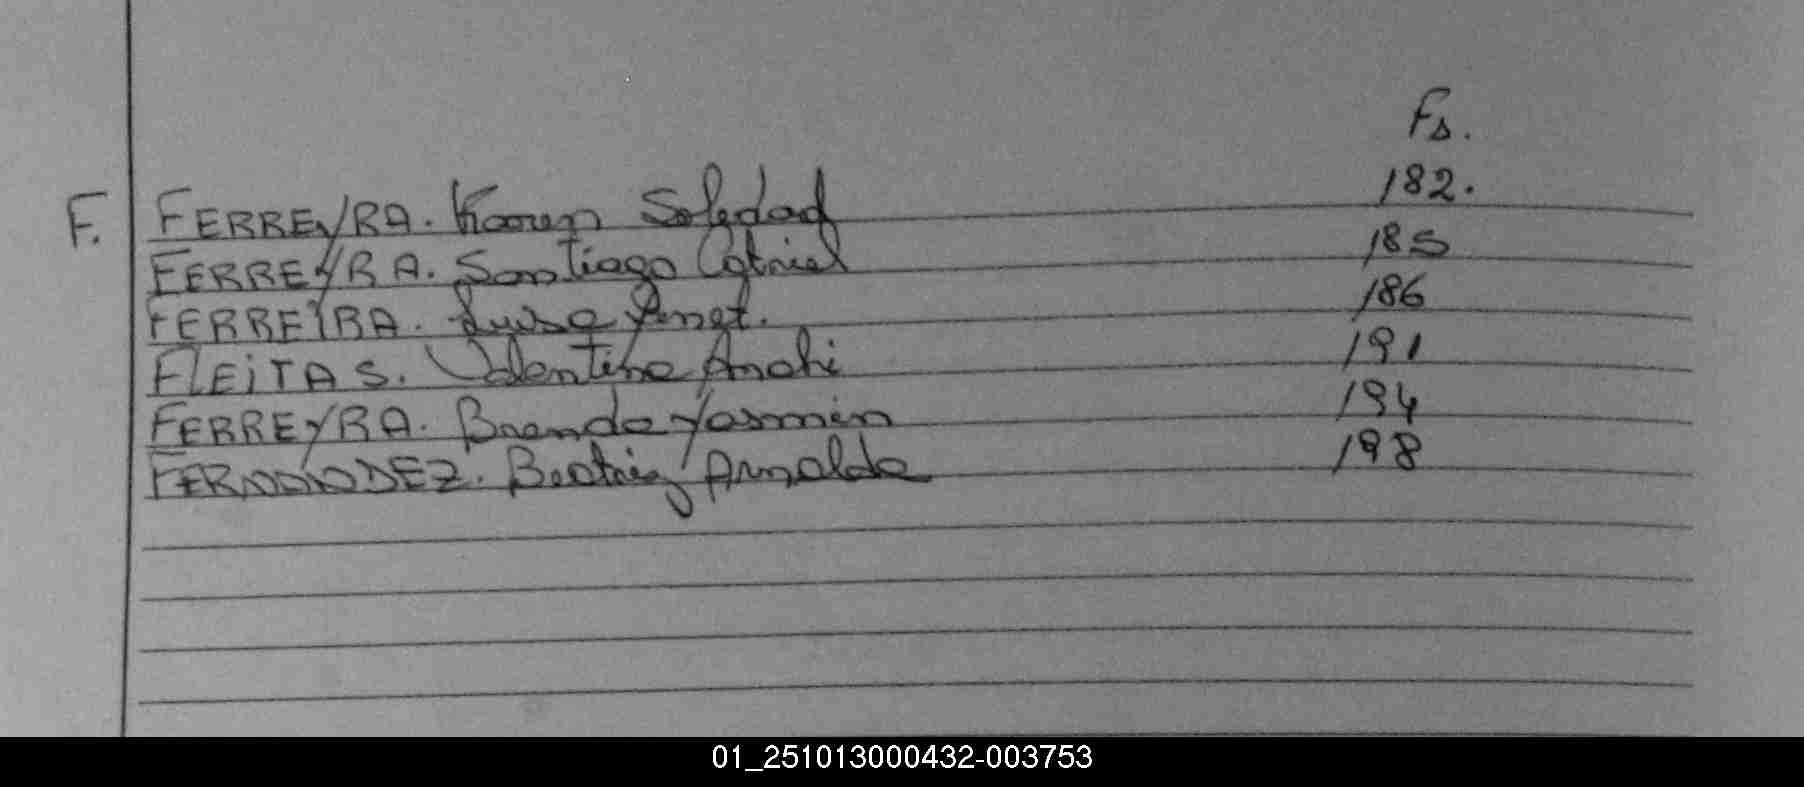 Fs.
F. FERREYRA. Karen Soledad 182.
FERREYRA. Santiago Catriel 185
FERREIRA. Luisa 186
FLEITAS. Valentina Anahi 191
FERREYRA. Brenda Yasmin 194
FERNANDEZ. Beatriz Arnalda 198
01_251013000432-003753